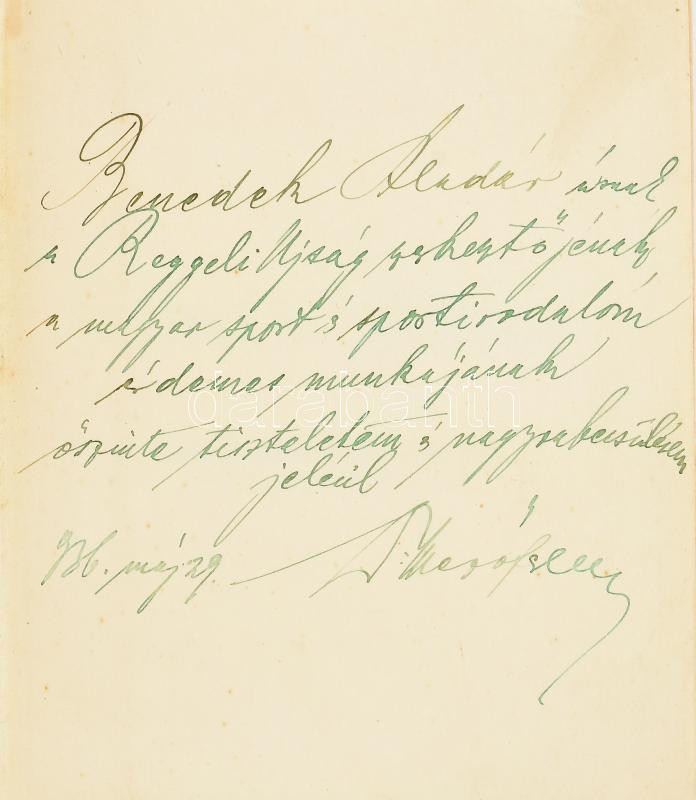 Benedek Aladár úrnak
a Reggeli Ujság szerkesztőjének,
a magyar sport és sportirodalom
érdemes munkájának
őszinte tiszteletem és nagyrabecsülésem
jeléül
darabanth
936. máj 29.